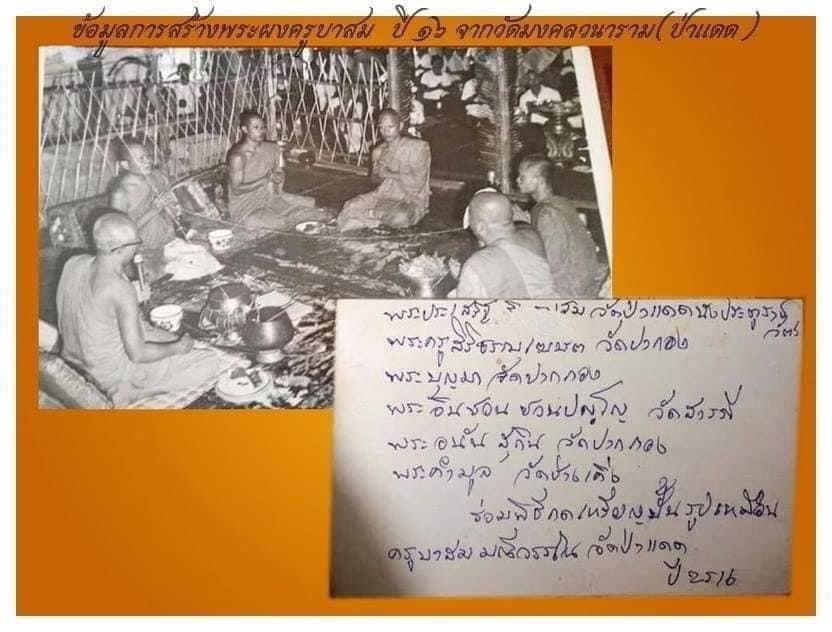 ข้อมูลการสร้างพระผงครูบาสม ปี ๑๖ จากวัดมงคลวนาราม(ป่าแดด)
พระประเสริฐ วัดป่าแดด
พระครูสิริ วัดปากกอง
พระบุญมา วัดปากกอง
พระอินชอน ชวนปญฺโญ วัดสารภี
พระอนัน วัดปากกอง
พระคำมูล
ร่วมพิธีกดเหรียญปั้มรูปเหมือน
ครูบาสม มณีวรรโณ วัดป่าแดด
ปี ๒๕๑๖